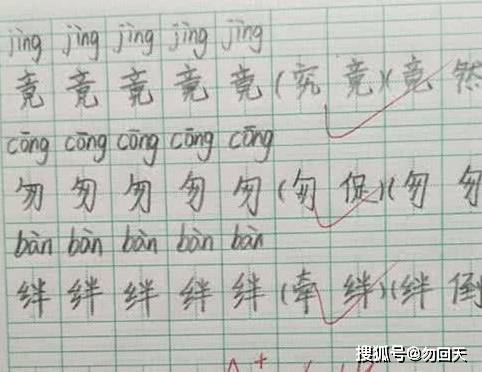 jìng jìng jìng jìng jìng
竟 竟 竟 竟 竟 (究 竟)(竟 然
cōng cōng cōng cōng cōng
匆 匆 匆 匆 匆 (匆 促)(匆 匆
bàn bàn bàn bàn bàn
绊 绊 绊 绊 绊 (牵 绊)(绊 倒
A+
搜狐号@勿回天